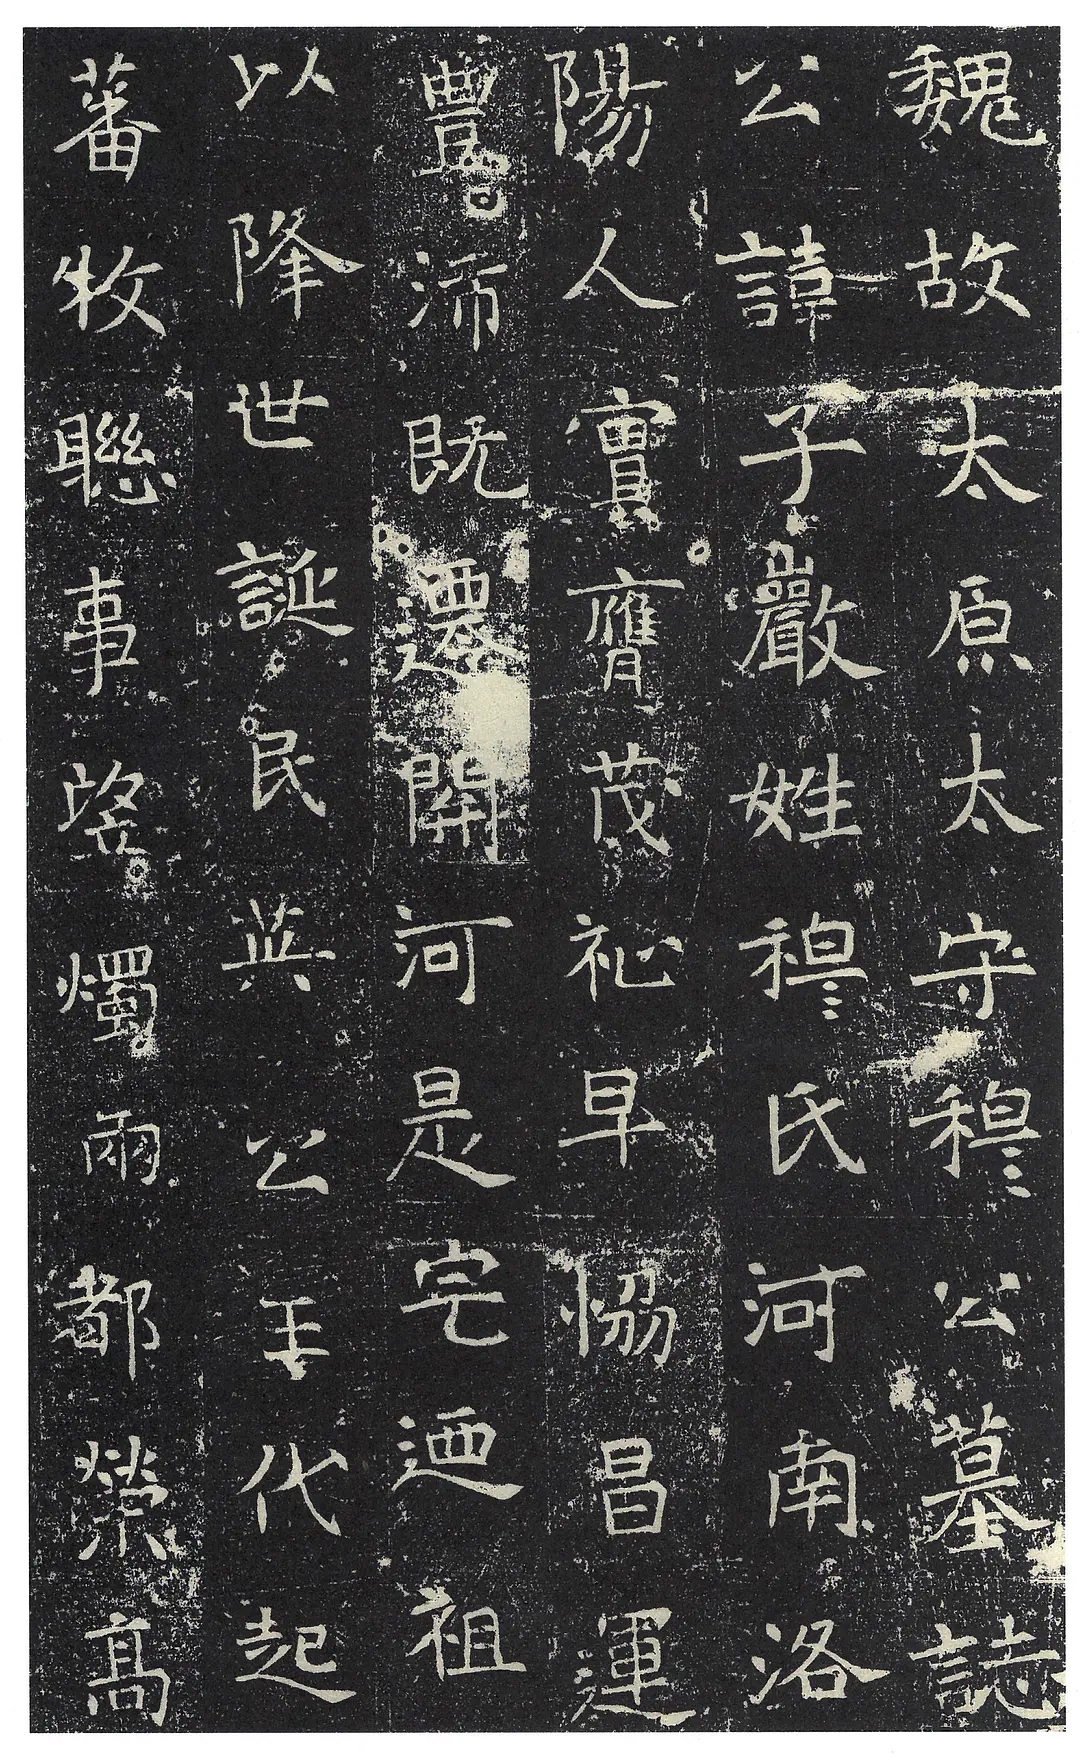 魏故太原太守穆公墓誌
公諱子巖姓穆氏河南洛
陽人實膺茂祉早恊昌運
豐沛既遷開河是宅迺祖
以降世誕民英公王代起
蕃牧聯事燭兩都榮高